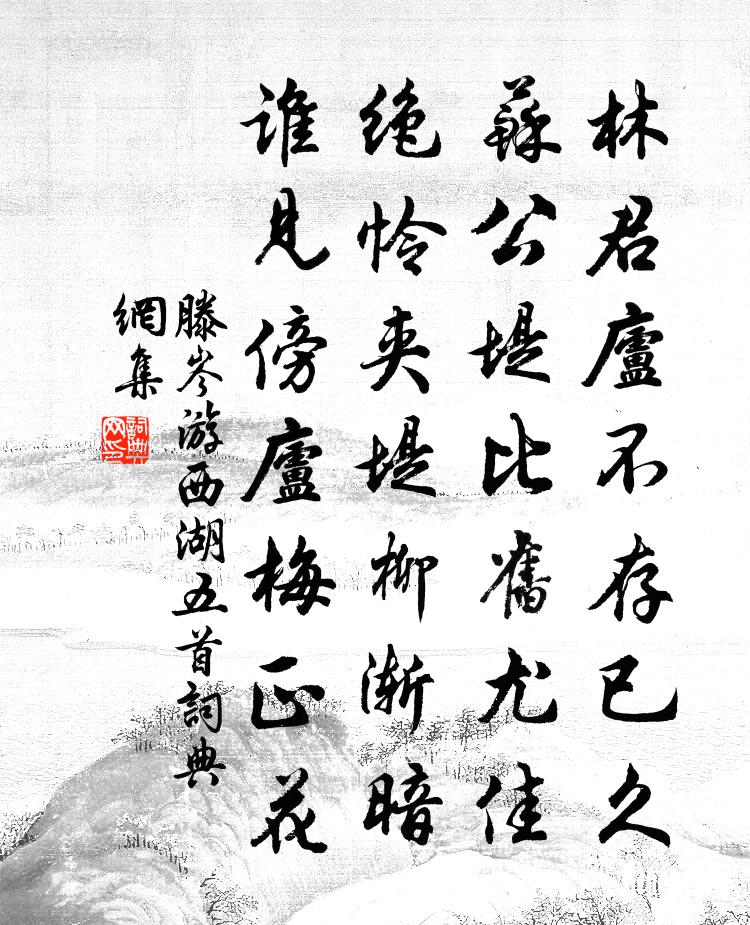 林君廬不存已久
蘇公堤比舊尤佳
絶怜夹堤柳渐暗
谁見傍廬梅正花
滕岑游西湖五首詞典
網集
詞典
网印